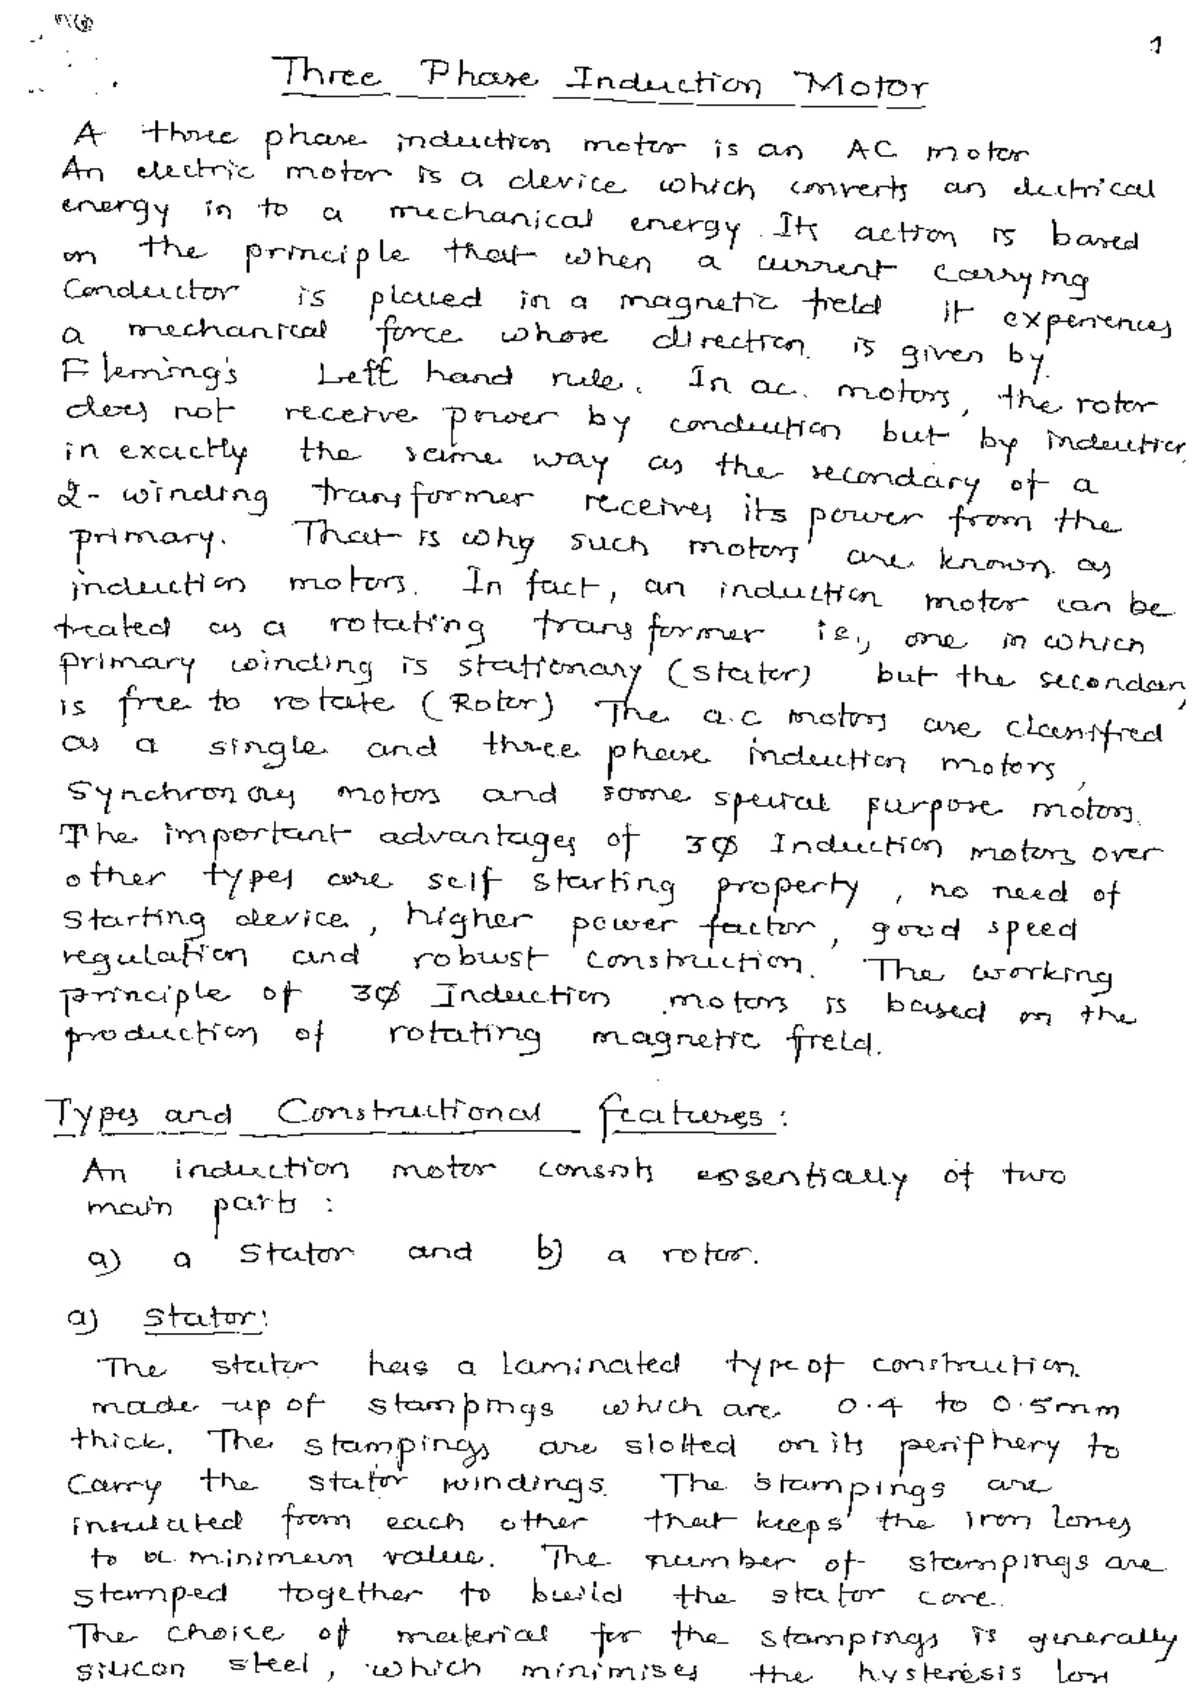 1
Three Phase Induction Motor
A three phase induction motor is an AC motor
An electric motor is a device which converts an electrical
energy in to a mechanical energy. Its action is based
on the principle that when a current carrying
Conductor is placed in a magnetic field it experiences
a mechanical force whose direction is given by
Fleming's Left hand rule. In ac. motors, the rotor
does not receive power by conduction but by induction
in exactly the same way as the secondary of a
2-winding transformer receives its power from the
primary. That is why such motors are known as
induction motors. In fact, an induction motor can be
treated as a rotating transformer ie., one in which
primary winding is stationary (stator) but the secondary
is free to rotate (Rotor) The a.c motors are classified
as a single and three phase induction motors,
Synchronous motors and some special purpose motors.
The important advantages of 3Ø Induction motors over
other types are self starting property, no need of
starting device, higher power factor, good speed
regulation and robust construction. The working
principle of 3Ø Induction motors is based on the
production of rotating magnetic field.
Types and Constructional features:
An induction motor consists essentially of two
main parts:
a) a Stator and b) a rotor.
a) Stator:
The stator has a laminated type of construction.
made up of stampings which are 0.4 to 0.5mm
thick. The stampings are slotted on its periphery to
Carry the stator windings. The stampings are
insulated from each other that keeps the iron losses
to a minimum value. The number of stampings are
stamped together to build the stator core.
The choice of material for the stampings is generally
silicon steel, which minimises the hysteresis loss